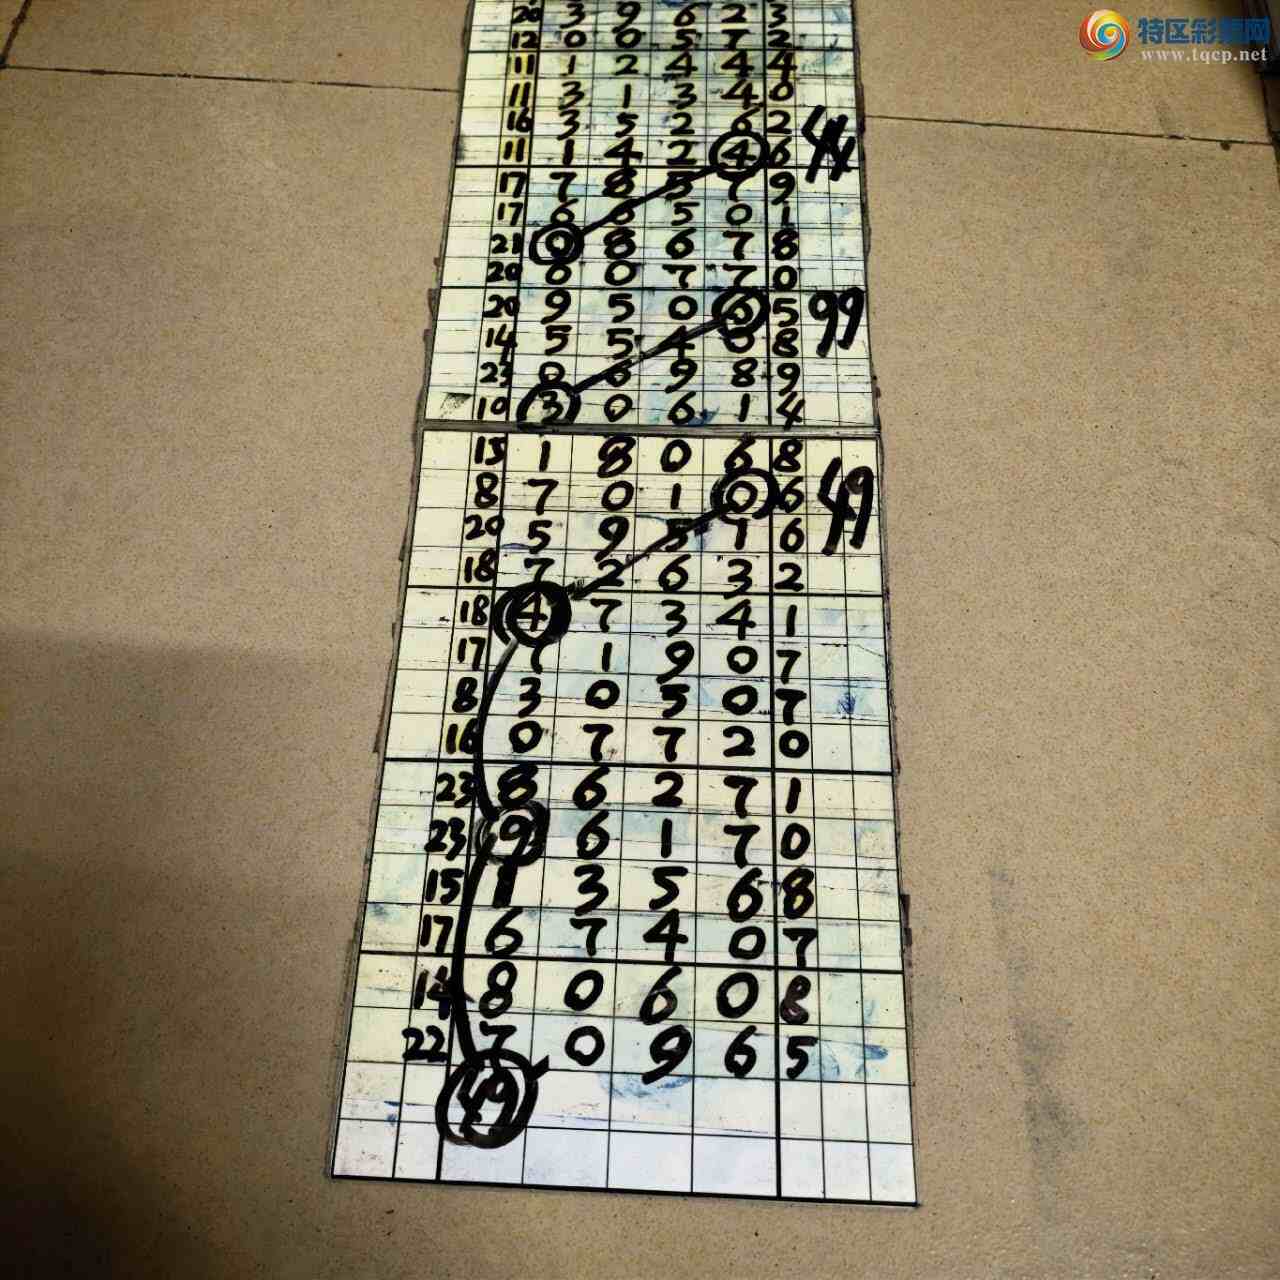 特区彩票网
www.tqcp.net
20 3 9 6 2 3
12 0 0 5 7 2
11 1 2 4 4 4
11 3 1 3 4 0
16 3 5 2 6 2
11 1 4 2 4 6 44
17 7 8 5 7 9
17 6 6 5 0 1
21 0 8 6 7 8
20 6 0 7 7 0
20 9 5 0 6 5 99
14 5 5 4 0 8
23 0 6 9 8 9
10 3 0 6 1 4
15 1 8 0 6 8
8 7 0 1 0 6 49
20 5 9 5 1 6
18 7 2 6 3 2
18 4 7 3 4 1
17 7 1 9 0 7
8 3 0 5 0 7
16 0 7 7 2 0
23 8 6 2 7 1
23 9 6 1 7 0
15 1 3 5 6 8
17 6 7 4 0 7
14 8 0 6 0 8
22 7 0 9 6 5
49